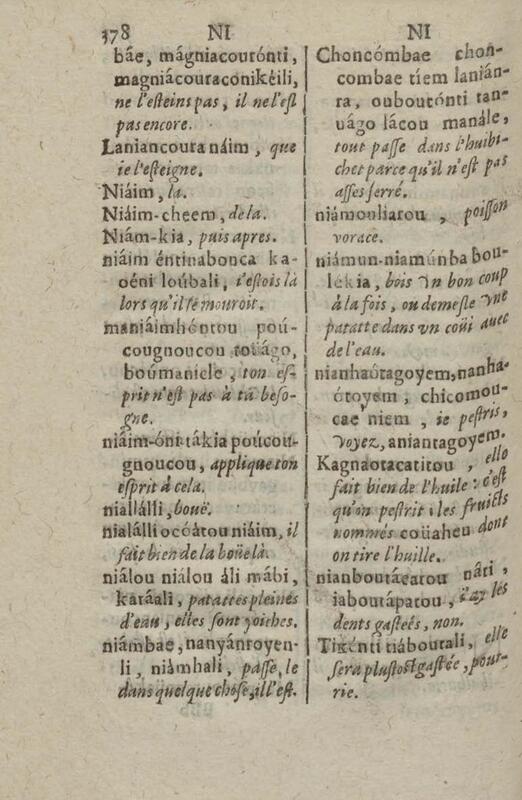 378 NI NI
báe, mágniacoutónti,
magniácouraconikéili,
ne l'esteins pas, il ne l'est
pas encore.
Laniancoura náim, que
ie l'esteigne.
Niáim, la.
Niáim-cheem, de la.
Niám-kia, puis apres.
niáim éntinabonca ka-
oéni loúbali, i'estois là
lors qu'il se mouroit.
maniáimhéntou poú-
cougnoucou toúágo,
boúmanicle, ton es-
prit n'est pas à ta beso-
gne.
niáim-óni tákia poúcou-
gnoucou, applique ton
esprit à cela.
niallálli, bouë.
nialálli ocóátou niáim, il
fait bien de la boüe là.
niálou niálou áli mábi,
karáali, patattes pleines
d'eau, elles sont yoiches.
niámbae, nanyánroyen-
li, niámhali, passe, le
dans quelque chose, il l'est.
Choncómbae chon-
combae tíem lanián-
ra, ouboutónti tan-
uágo lácou manále,
tout passe dans l'huibi-
chet parce qu'il n'est pas
asses serré.
niámouliatou, poisson
vorace.
niámun-niamúnba bou-
lékia, bois vn bon coup
à la fois, ou demesle vne
patatte dans vn coüi auec
de l'eau.
nianhaótagoyem, nanha-
ótoyem, chicomou-
cae niem, ie pestris,
voyez, aniantagoyem.
Kagnaotacatitou, elle
fait bien de l'huile: c'est
qu'on pestrit les fruicts
nommés coüaheu dont
on tire l'huille.
nianboutácatou náti,
iaboutápatou, i'ay les
dents gasteés, non.
Tikénti tiáboutali, elle
sera plustost gastée, pour-
rie.